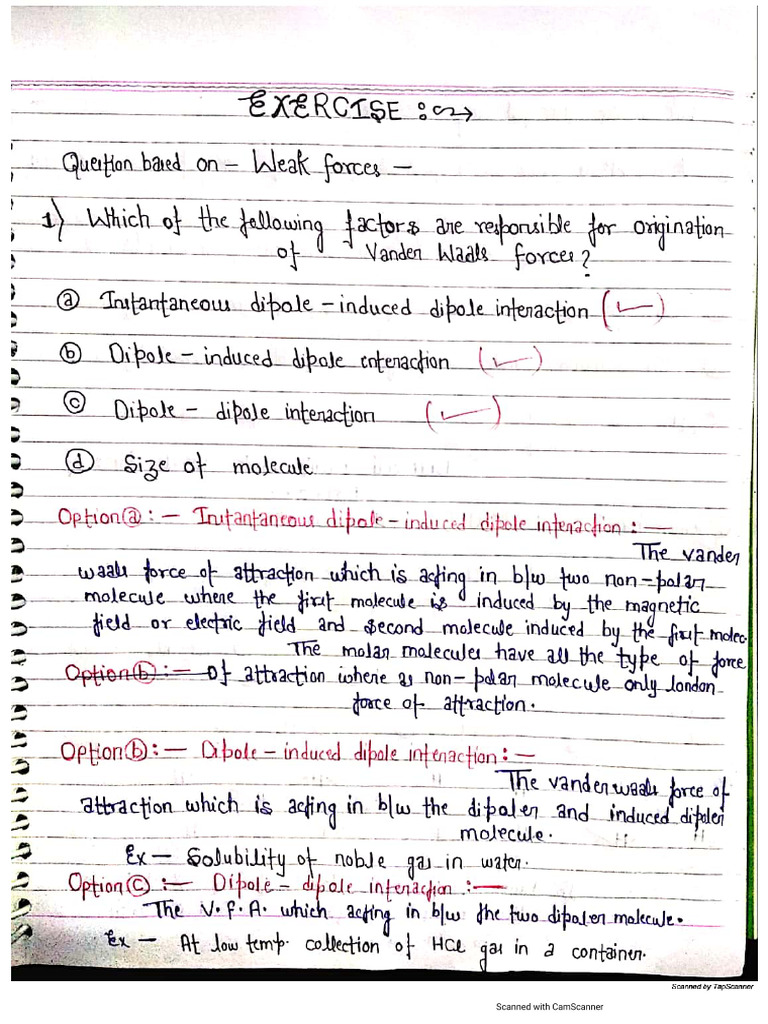 EXERCISE :~→
Question based on - Weak forces -
1) Which of the following factors are responsible for origination
of Vander Waals forces?
(a) Instantaneous dipole - induced dipole interaction (✓)
(b) Dipole - induced dipole interaction (✓)
(c) Dipole - dipole interaction (✓)
(d) Size of molecule
Option (a) :- Instantaneous dipole - induced dipole interaction : -
The vander
waals force of attraction which is acting in b/w two non-polar
molecule where the first molecule is induced by the magnetic
field or electric field and second molecule induced by the first molec.
The molar molecules have all the type of force
Option (b) :- of attraction where as non-polar molecule only london
force of attraction.
Option (b) :- Dipole - induced dipole interaction : -
The vander waals force of
attraction which is acting in b/w the dipoler and induced dipoler
molecule.
Ex - Solubility of noble gas in water.
Option (c) :- Dipole - dipole interaction : -
The V.f.A. which acting in b/w the two dipoler molecule.
Ex - At low temp. collection of HCl gas in a container.
Scanned by TapScanner
Scanned with CamScanner